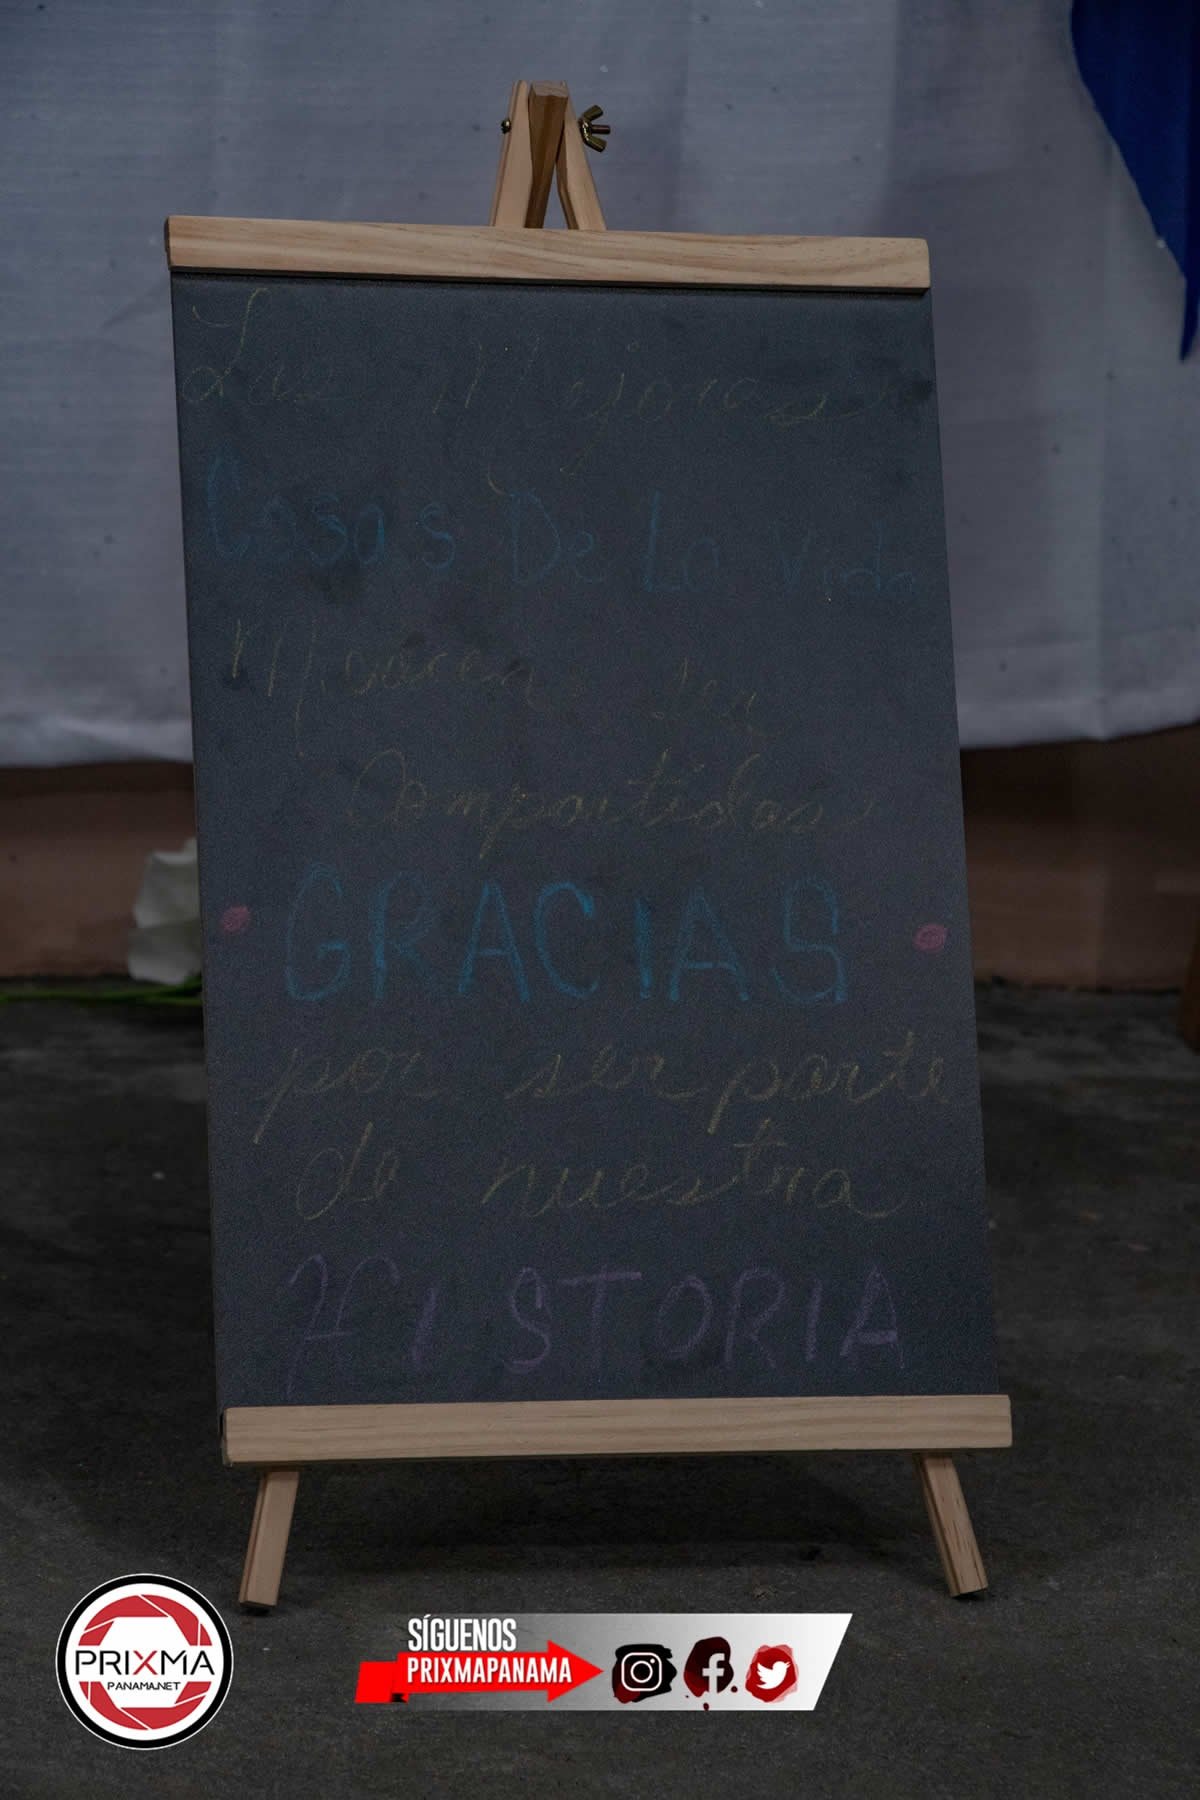 Las Mejores
Cosas De La Vida
Merecen ser
Compartidas
GRACIAS
por ser parte
de nuestra
HISTORIA
PRIXMA
PANAMA.NET
SÍGUENOS
PRIXMAPANAMA